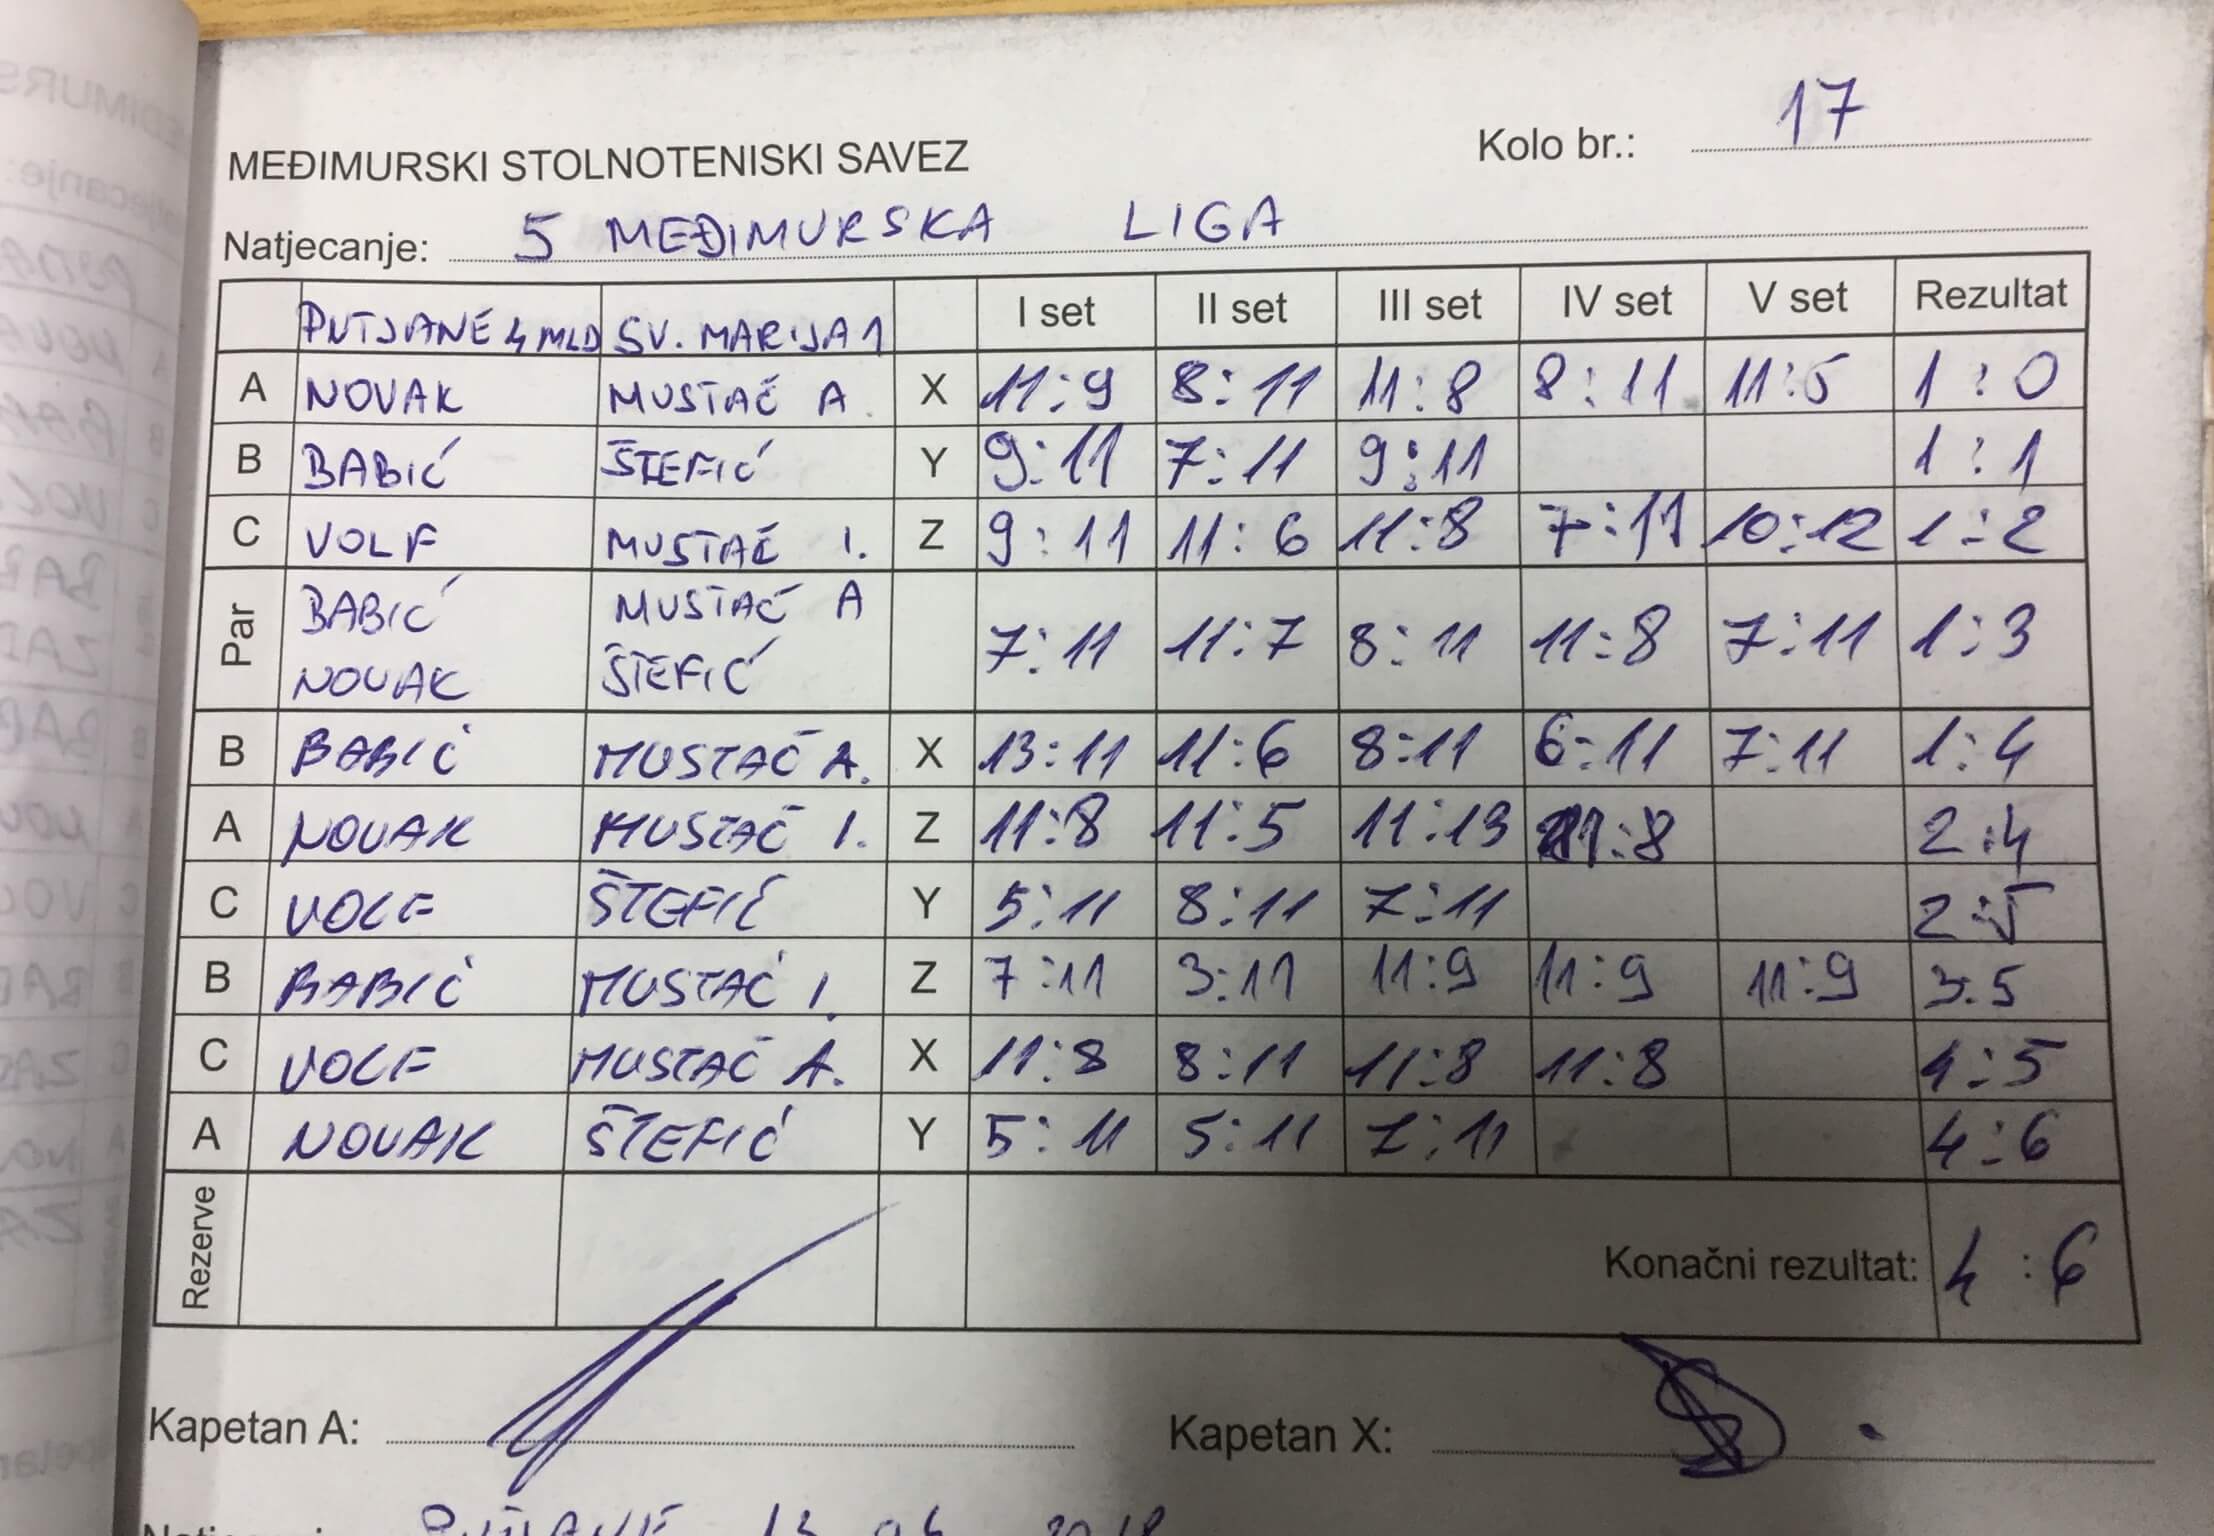 MEĐIMURSKI STOLNOTENISKI SAVEZ
Kolo br.: 17
Natjecanje: 5 MEĐIMURSKA LIGA
PUTJANE 4 MLD SV. MARIJA 1 I set II set III set IV set V set Rezultat
A NOVAK MUSTAČ A. X 11:9 8:11 11:8 8:11 11:5 1:0
B BABIĆ ŠTEFIĆ Y 9:11 7:11 9:11 1:1
C VOLF MUSTAČ I. Z 9:11 11:6 11:8 7:11 10:12 1:2
Par BABIĆ MUSTAČ A 7:11 11:7 8:11 11:8 7:11 1:3
NOVAK ŠTEFIĆ
B BABIĆ MUSTAČ A. X 13:11 11:6 8:11 6:11 7:11 1:4
A NOVAK MUSTAČ I. Z 11:8 11:5 11:13 11:8 2:4
C VOLF ŠTEFIĆ Y 5:11 8:11 7:11 2:5
B BABIĆ MUSTAČ I. Z 7:11 3:11 11:9 11:9 11:9 3:5
C VOLF MUSTAČ A. X 11:8 8:11 11:8 11:8 4:5
A NOVAK ŠTEFIĆ Y 5:11 5:11 7:11 4:6
Rezerve
Konačni rezultat: 4:6
Kapetan A: Kapetan X: